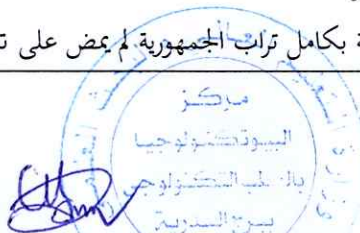 ة بكامل تراب الجمهورية لم يمض على ت
مركز
البيوتكنولوجيا
بالقطب التكنولوجي
ببرج السدرية